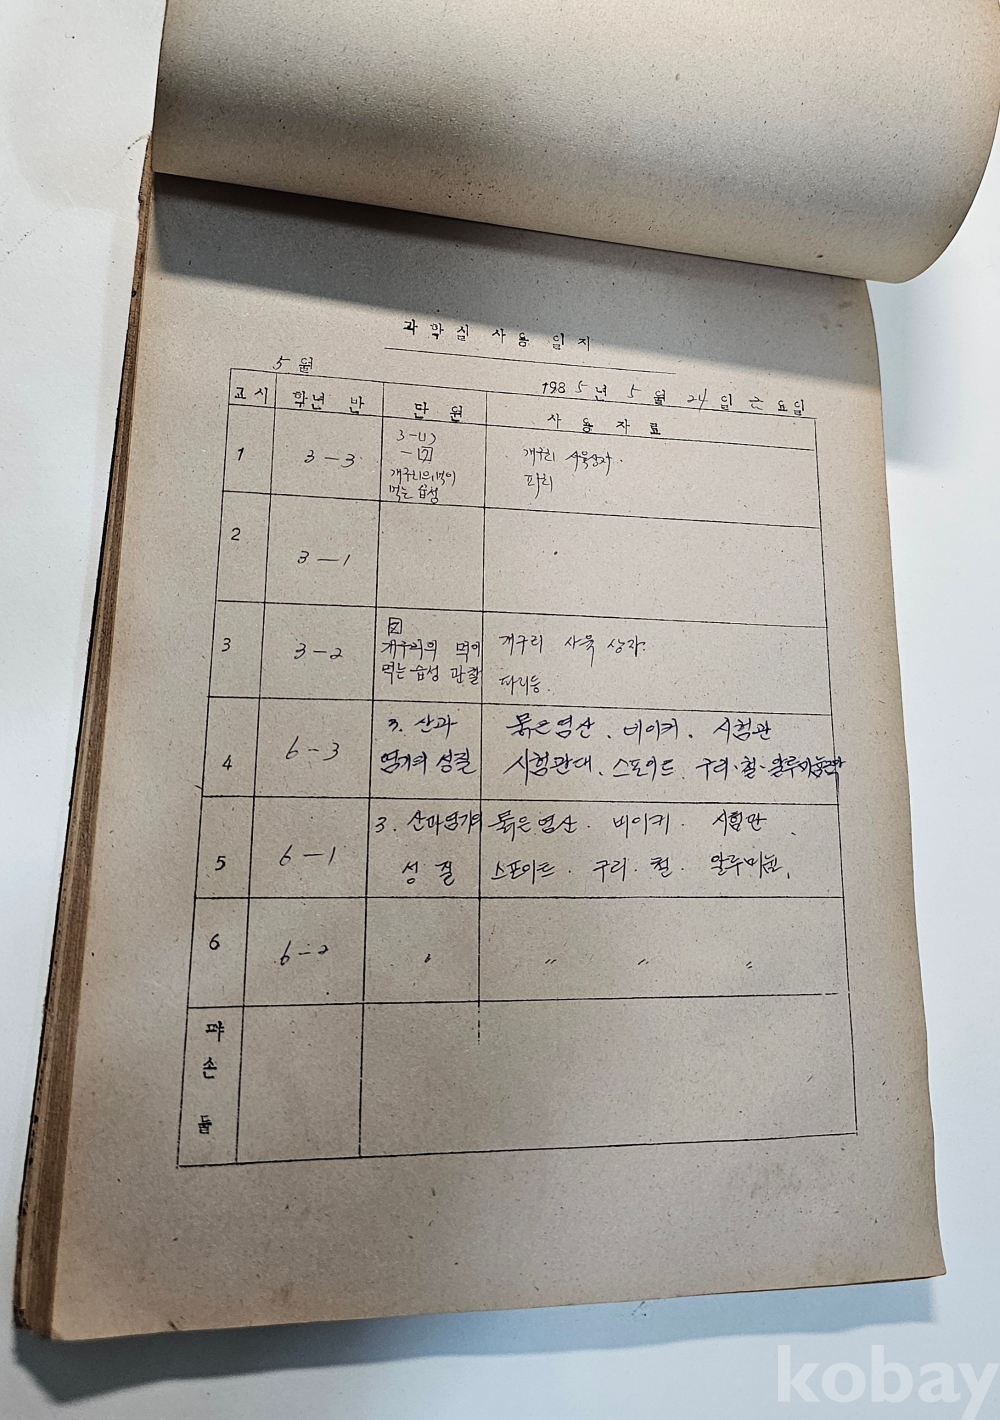 과학실 사용 일지
5월
1985년 5월 24일 금요일
교시 학년 반 단원 사용자료
1 3-3 3-(1)
-[2]
개구리의 먹이
먹는 습성
개구리 사육상자.
파리
2 3-1
3 3-2 [2]
개구리의 먹이
먹는 습성 관찰
개구리 사육 상자.
파리등.
4 6-3 3. 산과
염기의 성질
묽은염산. 비이커. 시험관
시험관대. 스포이트. 구리·철·알루미늄
5 6-1 3. 산과염기의
성질
묽은염산. 비이커. 시험관.
스포이트. 구리. 철. 알루미늄.
6 6-2 〃 〃 〃 〃
파손물
kobay